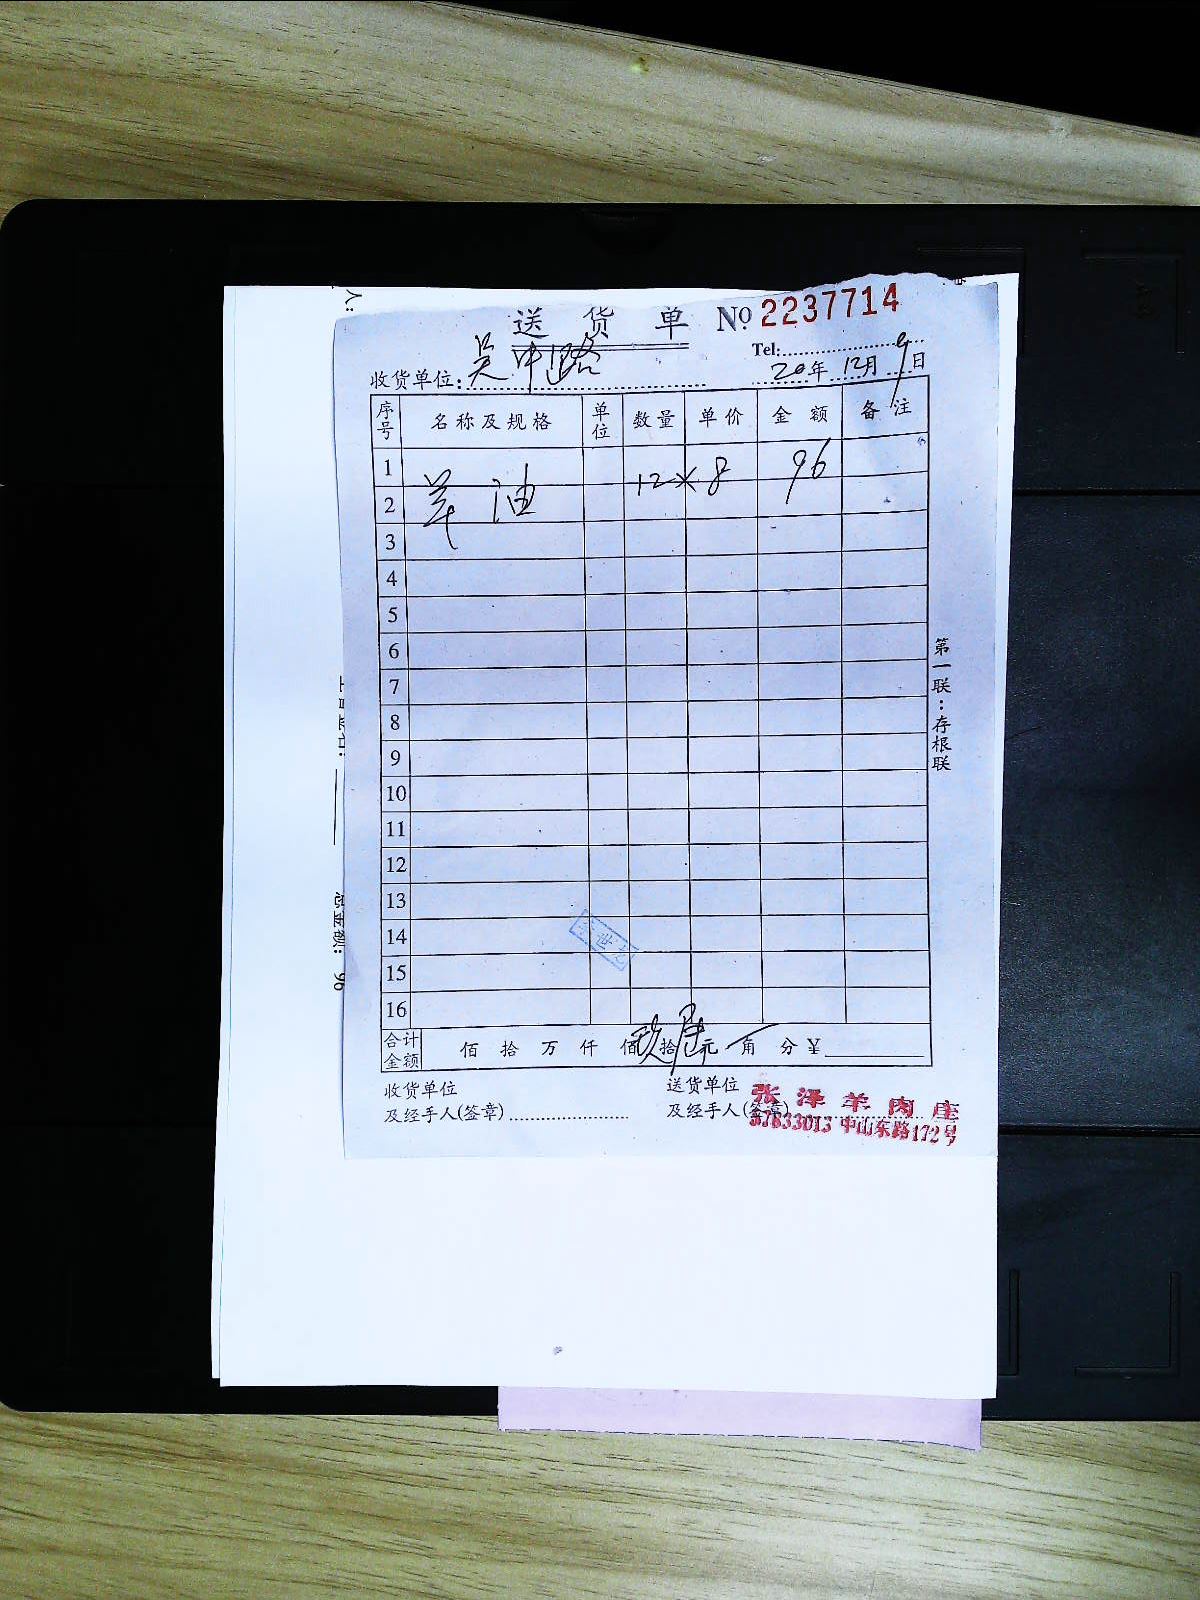 送 货 单 No 2237714
Tel:
收货单位: 吴中路 20年 12月 9日
序号 名称及规格 单位 数量 单价 金额 备注
1
2 羊油 12×8 96
3
4
5
6
7
8
9
10
11
12
13
14
15
16
合计金额 佰 拾 万 仟 佰 玖拾陆元 角 分 ¥
收货单位 送货单位
及经手人(签章) 及经手人(签章)
张泽羊肉庄
57833013 中山东路172号
第一联:存根联
总金额: 96
人: